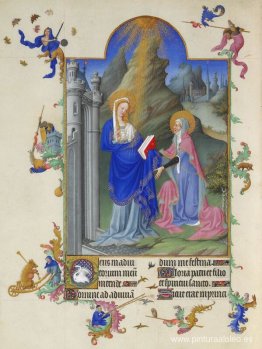 Deus in adiu
torium meum
intende
Domine ad adiuuan
dum me festina.
Gloria patri et filio
et spiritui sancto.
Sicut erat in prin
www.pinturaaloleo.es